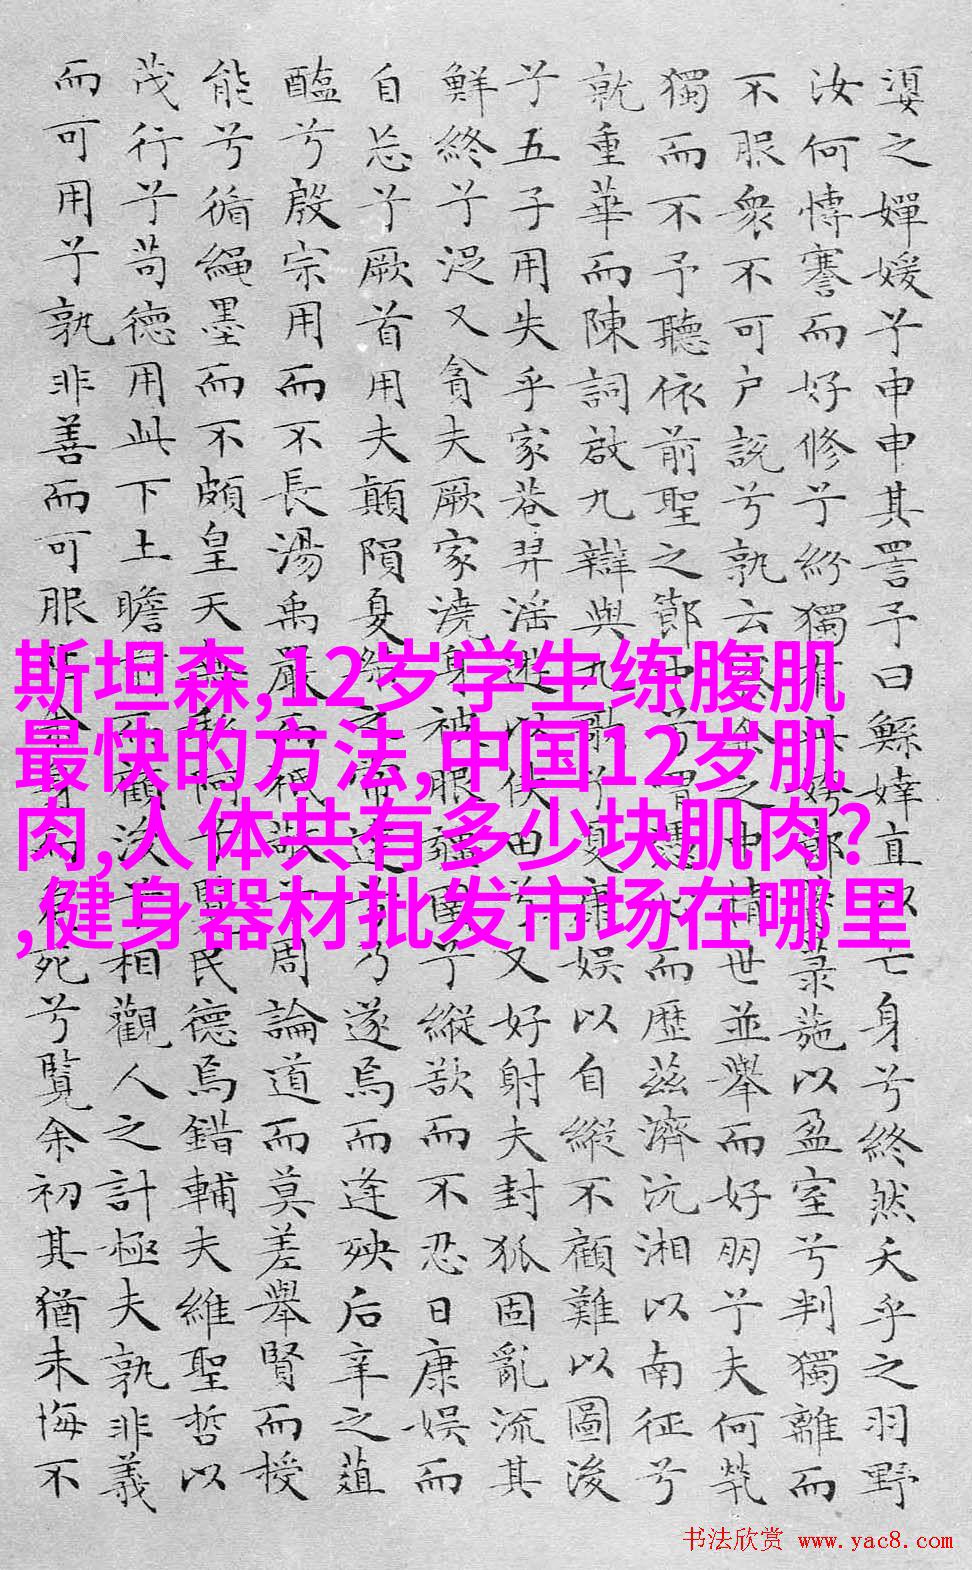 嬃之嬋媛兮申申其詈予曰鯀婞直以亡身兮終然夭乎之羽野
汝何博謇而好修兮紛獨有此姱節薋菉葹以盈室兮判獨離而
不服衆不可户說兮孰云察余之中情世並舉而好朋兮夫何煢
獨而不予聽依前聖之節中兮喟憑心而歷茲濟沅湘以南征兮
就重華而陳詞啟九辯與九歌兮夏康娛以自縱不顧難以圖後
兮五子用失乎家巷羿淫遊以佚田兮又好射夫封狐固亂流其
鮮終兮浞又貪夫厥家澆身被服疆圉兮縱欲而不忍日康娛而
自忘兮厥首用夫顛隕夏桀之常違兮乃遂焉而逢殃后辛之菹
醢兮殷宗用而不長湯禹嚴而祗敬兮周論道而莫差舉賢而授
能兮循繩墨而不頗皇天無私阿兮覽民德焉錯輔夫維聖哲以
茂行兮苟德用此下土瞻前而顧後兮相觀人之計極夫孰非義
而可用兮孰非善而可服阽余身而危死兮覽余初其猶未悔不
斯坦森,12岁学生练腹肌
最快的方法,中国12岁肌
肉,人体共有多少块肌肉?
,健身器材批发市场在哪里
书法欣赏 www.yac8.com